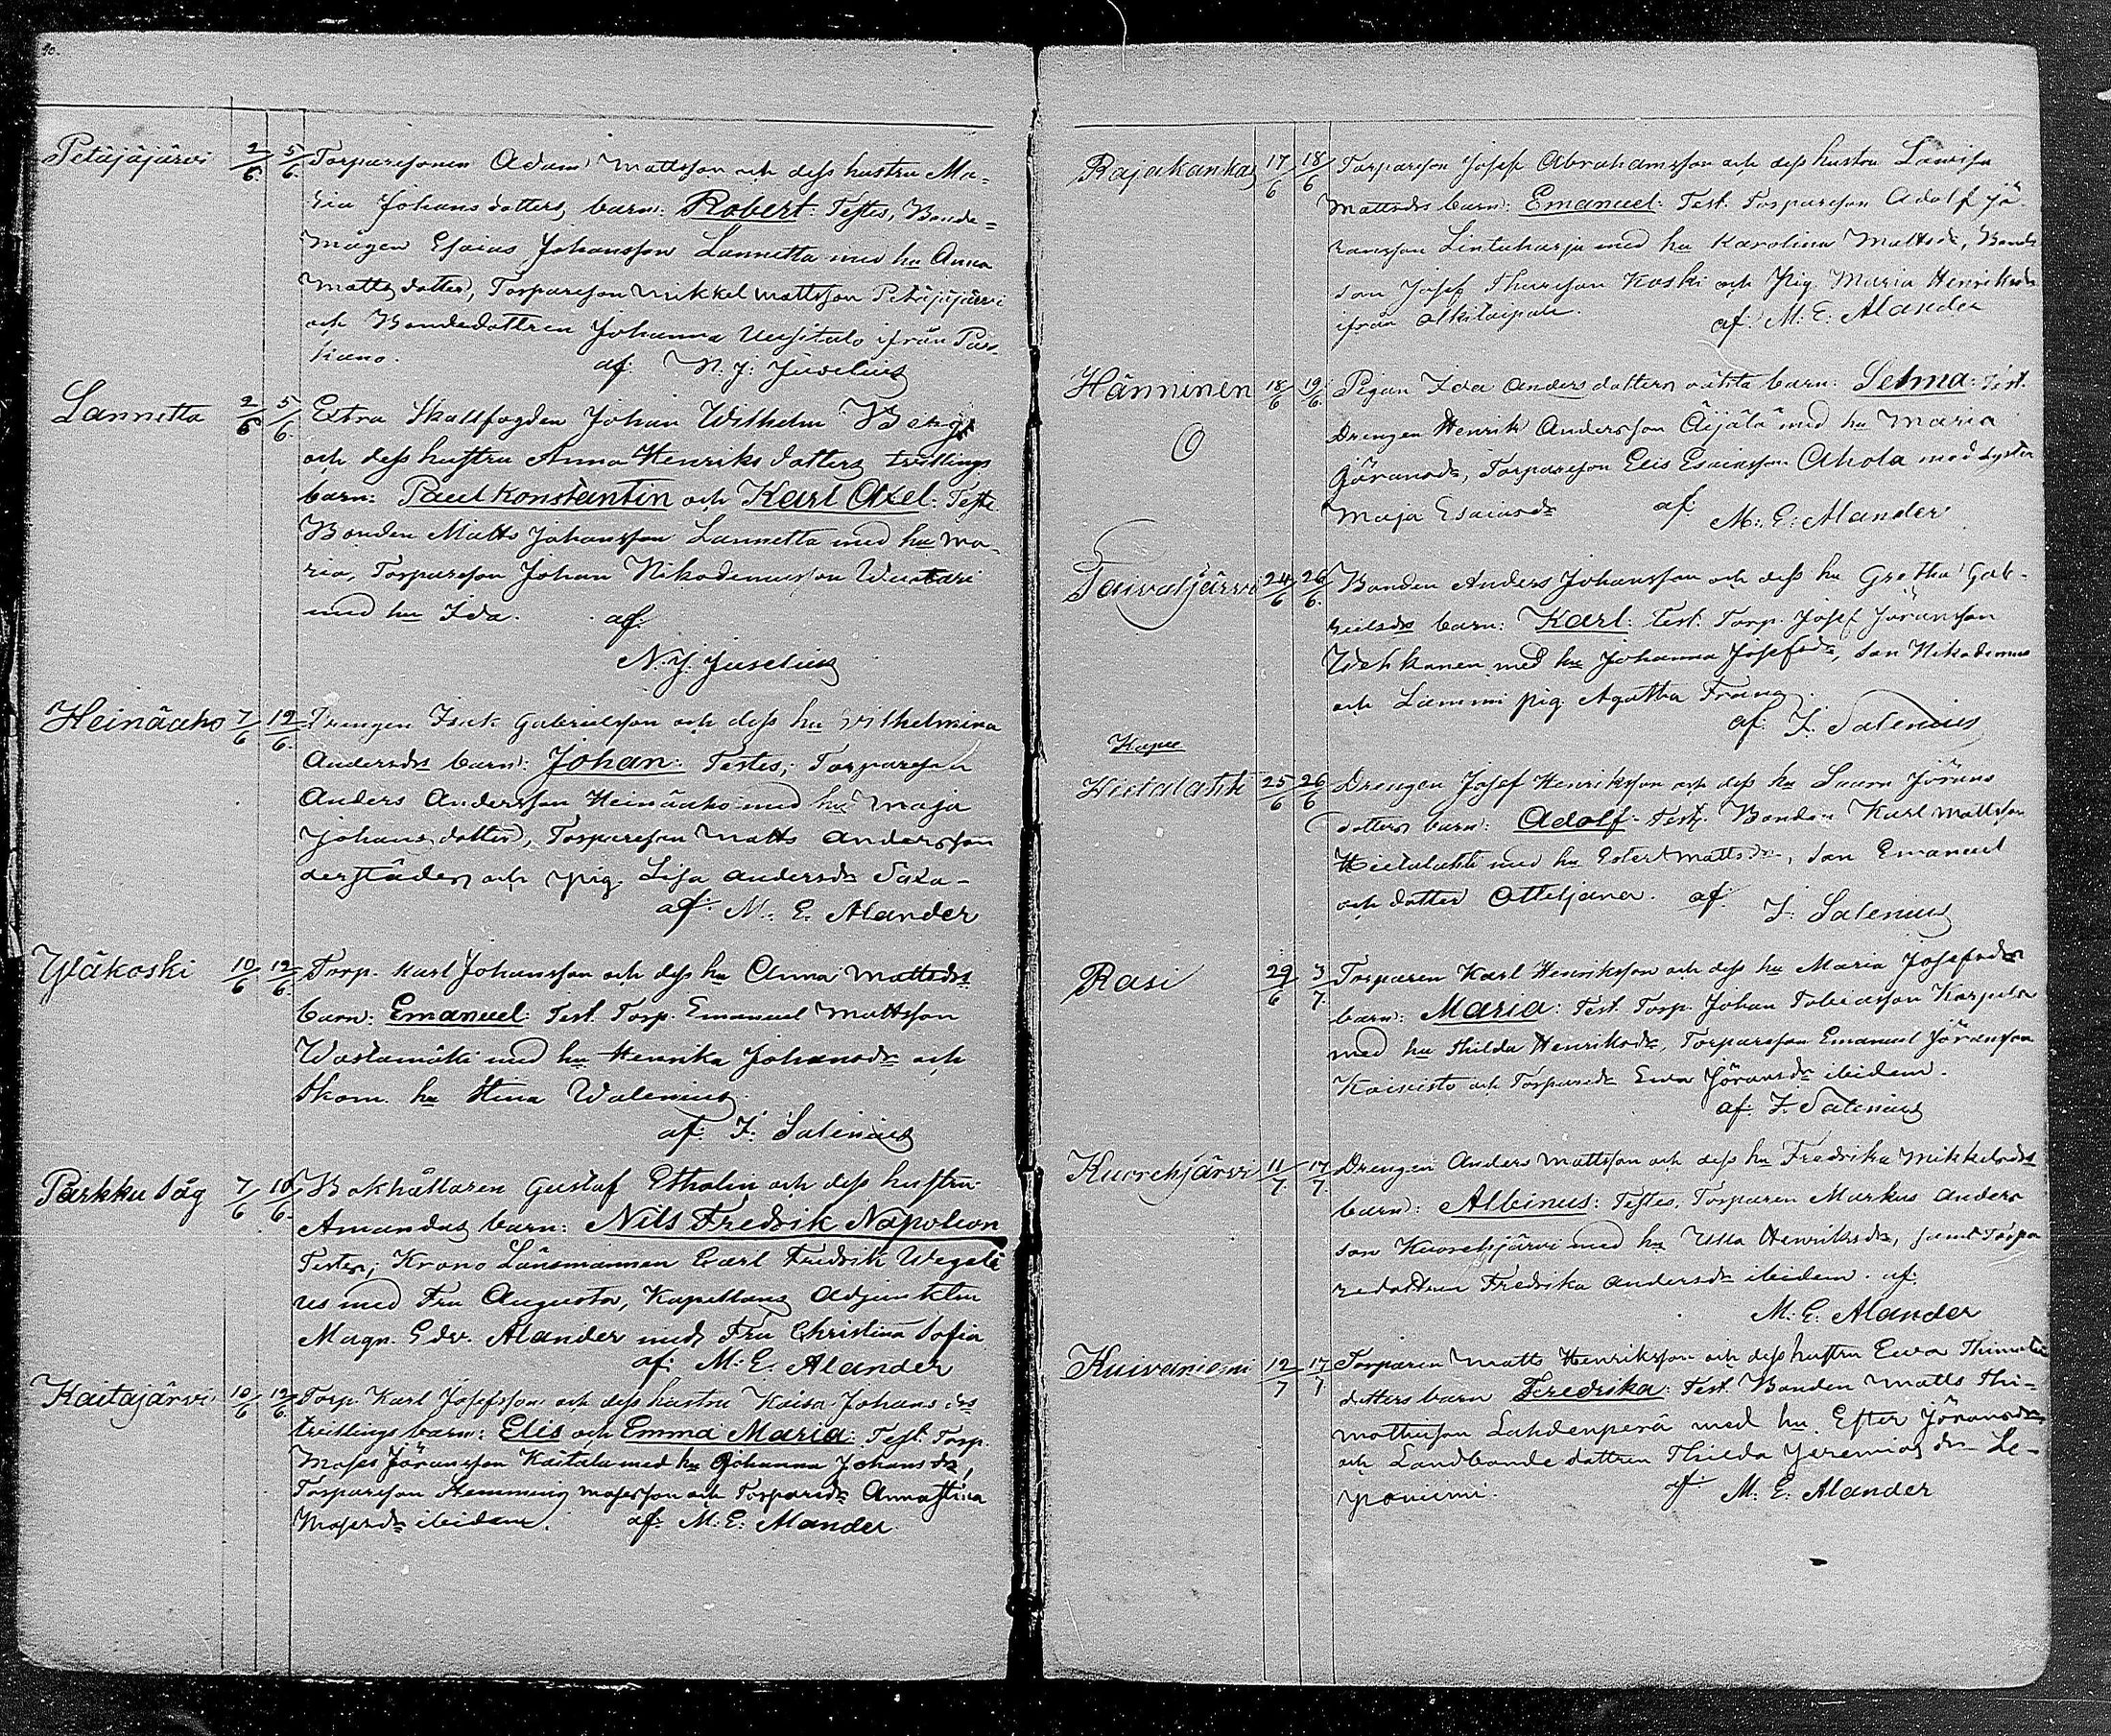 40.
Petäjäjärvi 2/6. 5/6. Torparesonen Adam Mattsson och dess hustru Ma-
ria Johansdotters barn: Robert: Testes, Bonde-
mågen Esaias Johansson Lannetta med hu Anna
Mattsdotter, Torpareson Mikkel Mattsson Petäjäjärvi
och Bondedottren Johanna Uusitalo ifrån Par-
kano. af N. J. Juselius
Lannetta 2/6 5/6. Extra Skallfogden Johan Wilhelm Berg
och dess hustru Anna Henriksdotters tvillings
barn: Paul Konstantin och Karl Axel: Teste.
Bonden Matts Johansson Lannetta med hu Ma-
ria, Torpareson Johan Nikodemusson
med hu Ida. af:
N. J. Juselius
Heinäaho 7/6 12/6. Drengen Isak Gabrielsson och dess hu Wilhelmina
Andersdrs barn: Johan: Testes; Torpareson
Anders Andersson Heinäaho med hu Maja
Johansdotter, Torpareson Matts Andersson
derstädes och pig. Lisa Andersdr Saxa-
af: M. E. Alander
Yläkoski 10/6 12/6. Torp. Karl Johansson och dess hu Anna Mattsdrs
barn: Emanuel: Test. Torp. Emanuel Mattsson
Wastamäki med hu Henrika Johansdr och
Skom. hu Stina Walenius.
af: F. Salenius
Parkku såg 7/6 10/6. Bokhållaren Gustaf Etholin och dess hustru
Amandas barn: Nils Fredrik Napoleon
Testes; Krono Länsmannen Carl Fredrik Wegeli
us med Fru Augusta, Kapellans Adjunkten
Magn. Edv. Alander med Fru Christina Sofia
af: M: E. Alander
Kaitajärvi 10/6 12/6. Torp. Karl Josefsson och dess hustru Kaisa Johansdrs
tvillings barn: Elis och Emma Maria: Test. Torp.
Moses Göransson Kaitala med hu Johanna Johansdr,
Torpareson Hemming Mosesson och Torparedr Annastina
Mosesdr ibidem. af: M: E: Alander
Rajakankas 17/6 18/6 Torpareson Josef Abrahamsson och dess hustru Lovisa
Mattsdrs barn: Emanuel: Test. Torpareson Adolf Jö-
ransson Lintuharju med hu Karolina Mattsdr, Bonde
son Josef Thureson Koski och Pig. Maria Henriksdr
ifrån Alkilaipale. af: M. E. Alander
Hänninen 18/6 19/6. Pigan Ida Andersdotters oäkta barn: Selma: Test.
O Drengen Henrik Andersson Äijälä med hu Maria
Göransdr, Torpareson Elis Esaiasson Ahola med syster
Maja Esaiasdr af: M: E: Alander
Taivaljärvi 24/6 26/6. Bonden Anders Johansson och dess hu Gretha Gab-
rielsdrs barn: Karl: Test. Torp. Josef Jöransson
Wehkanen med hu Johanna Josefsdr, son Nikodemus
och Lammi pig. Agatha Frans.
af: F. Salenius
Kapee
Hietalahti 25/6 26/6 Drengen Josef Henriksson och dess hu Laura Jörans
dotters barn: Adolf. Test. Bonden Karl Mattsson
Hietalahti med hu Ester Mattsdr, son Emanuel
och dotter Otteljana. af F. Salenius
Rasi 29/6 3/7. Torparen Karl Henriksson och dess hu Maria Josefsdrs
barn: Maria: Test. Torp. Johan Tobiasson Karpela
med hu Hilda Henriksdr, Torpareson Emanuel Jöransson
Koivisto och Torparedr Ewa Göransdr ibidem.
af: F. Salenius
Kuorehjärvi 11/7 17/7. Drengen Anders Mattsson och dess hu Fredrika Mikkelsdrs
barn: Albinus: Testes. Torparen Markus Anders
son Kuorehjärvi med hu Ulla Henriksdr, samt Torpa
redottren Fredrika Andersdr ibidem. af:
M. E. Alander
Kuivaniemi 12/7 17/7 Torparen Matts Henriksson och dess hustru Ewa Thimotei
dotters barn Fredrika: Test. Bonden Matts Thi-
motheson Lahdenperä med hu. Ester Jöransdr
och Landbondedottren Thilda Jeremiasdr Le-
poniemi. af M. E. Alander